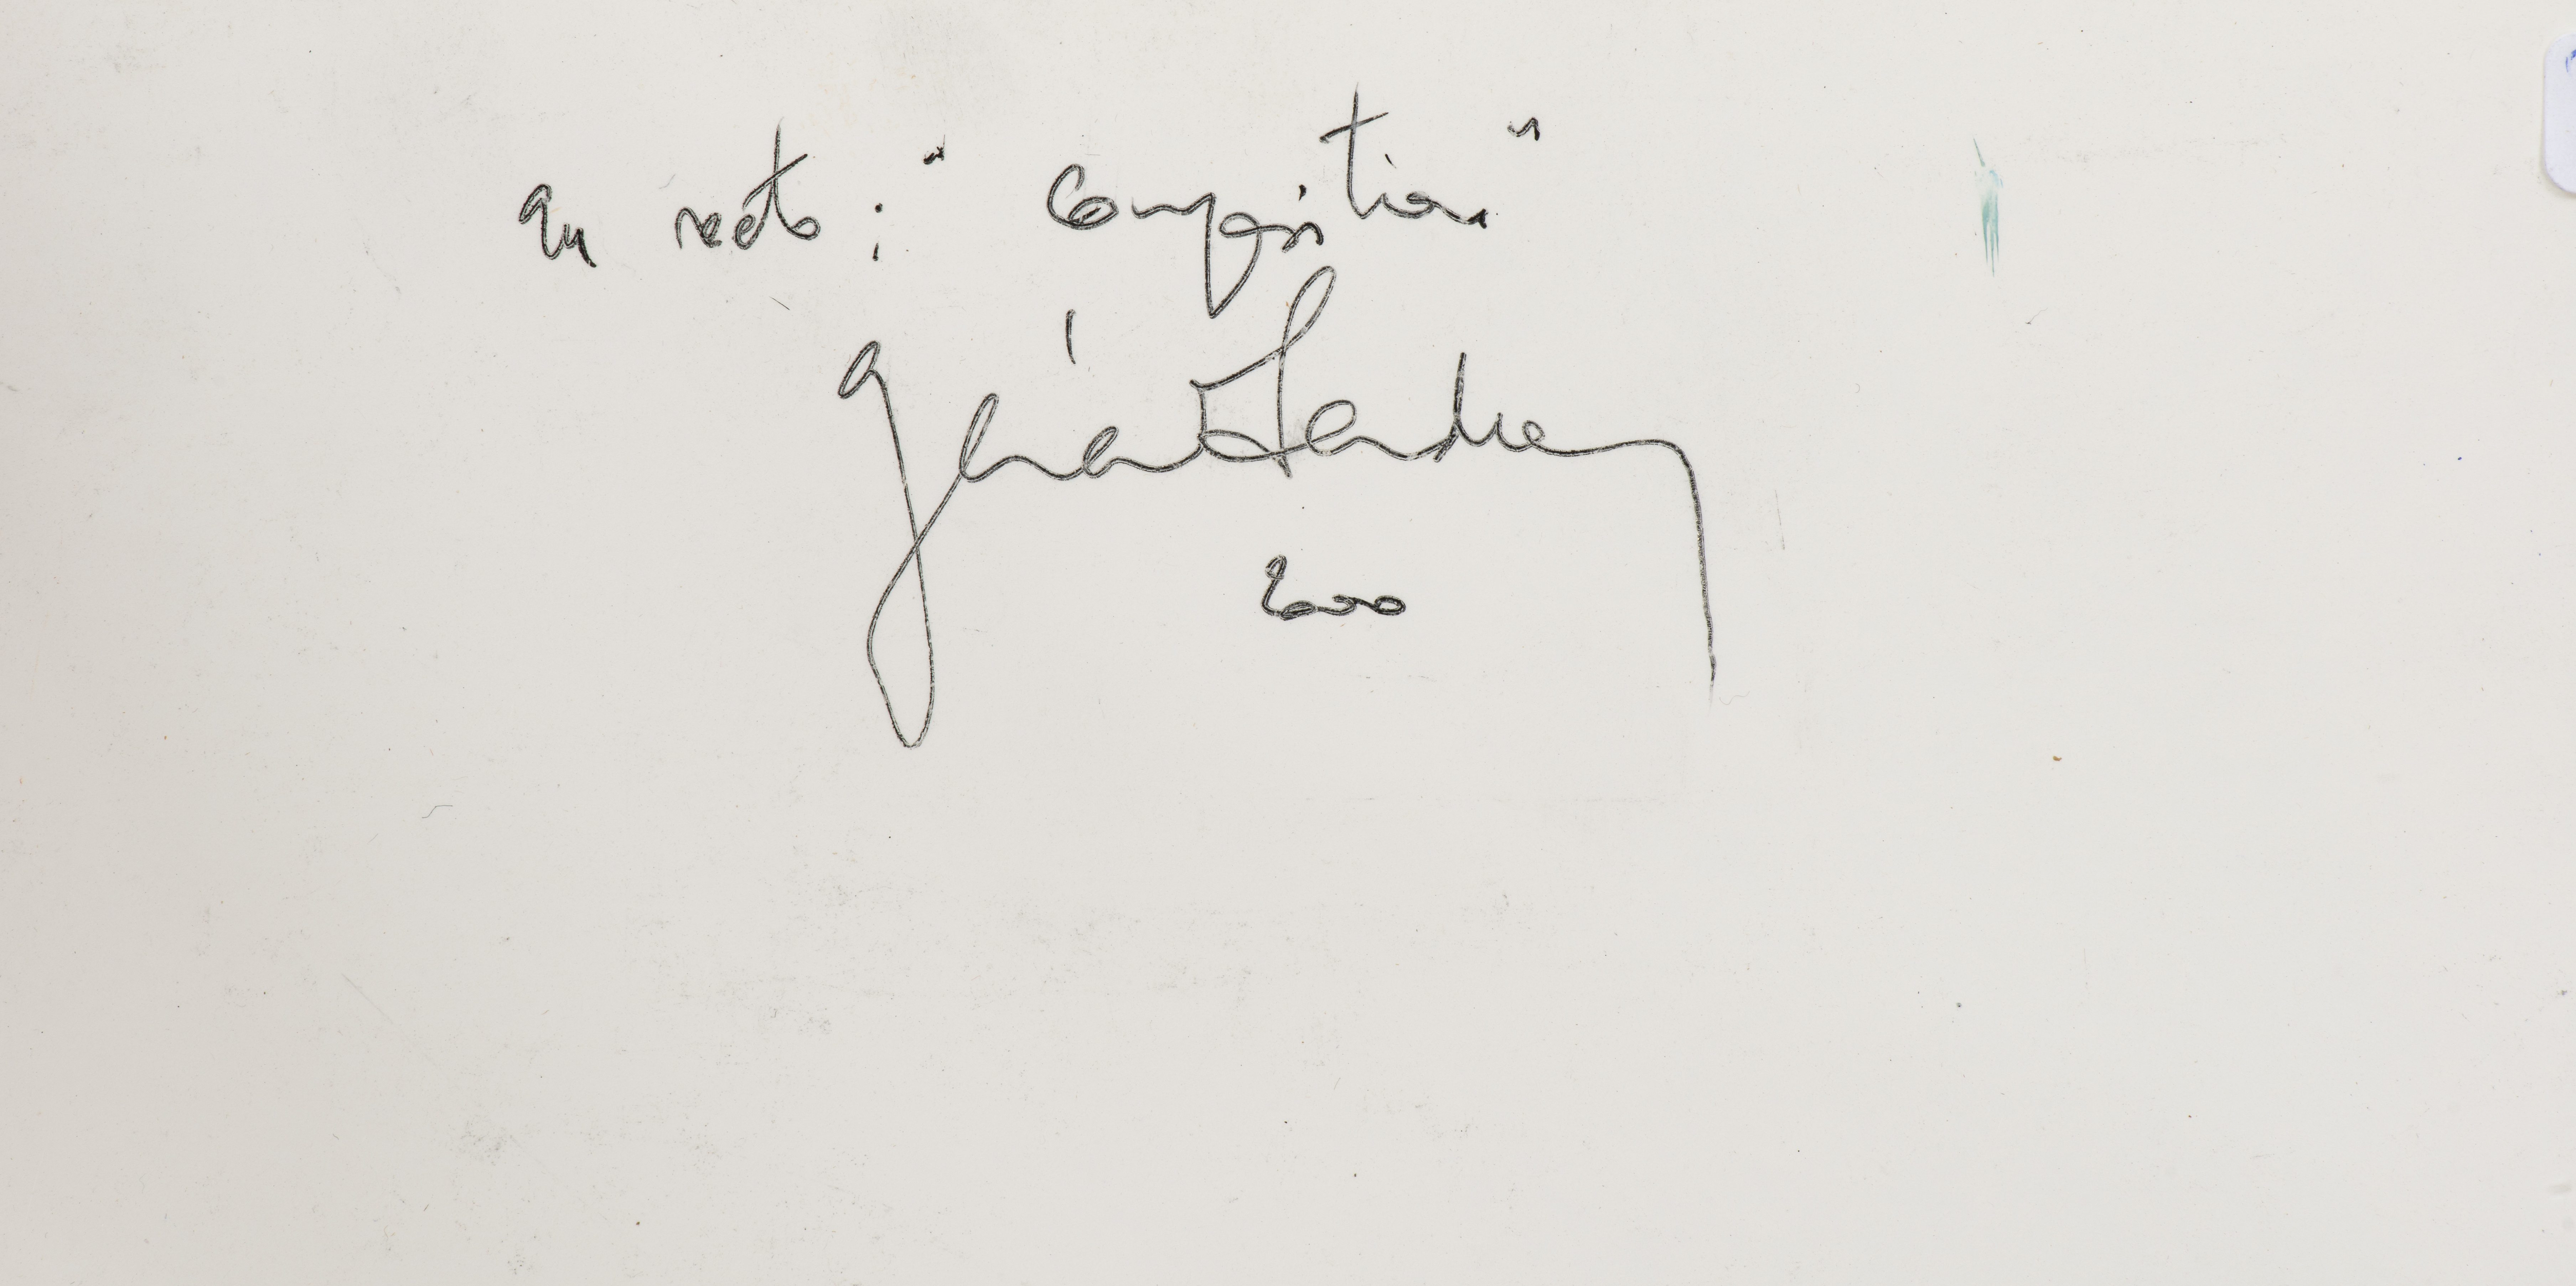 au recto : " composition "
Gérard Landrey
2000